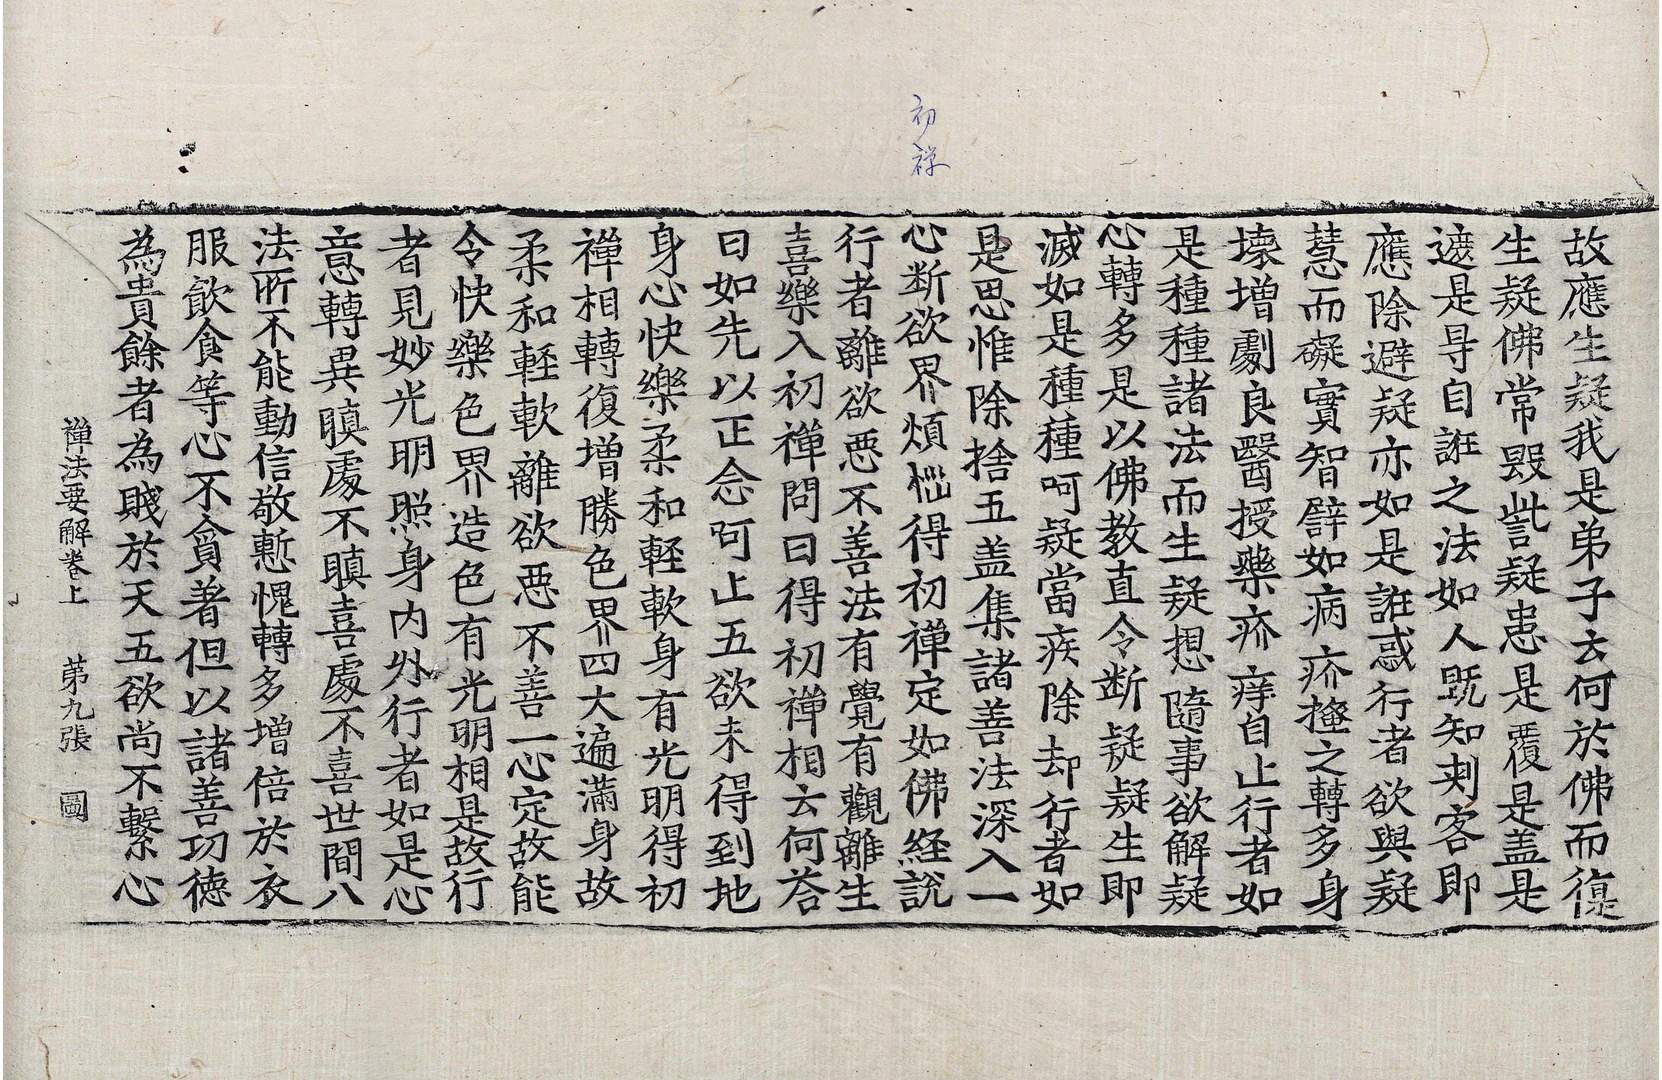 初禅
故應生疑我是弟子云何於佛而復
生疑佛常毀呰疑患是覆是盖是
遮是㝵自誑之法如人既知刺客即
應除避疑亦如是誑惑行者欲與疑
慧而礙實智譬如病疥搔之轉多身
壞增劇良醫授藥疥痒自止行者如
是種種諸法而生疑想隨事欲解疑
心轉多是以佛教直令断疑疑生即
滅如是種種呵疑當疾除却行者如
是思惟除捨五盖集諸善法深入一
心断欲界煩惱得初禪定如佛経說
行者離欲惡不善法有覺有觀離生
喜樂入初禪問曰得初禪相云何荅
曰如先以正念呵止五欲未得到地
身心快樂柔和輕軟身有光明得初
禪相轉復增勝色界四大遍滿身故
柔和軽軟離欲惡不善一心定故能
令快樂色界造色有光明相是故行
者見妙光明照身內外行者如是心
意轉異瞋處不瞋喜處不喜世間八
法所不能動信敬慙愧轉多增倍於衣
服飲食等心不貪著但以諸善功德
為貴餘者為賤於天五欲尚不繫心
禪法要解卷上　第九張　圖